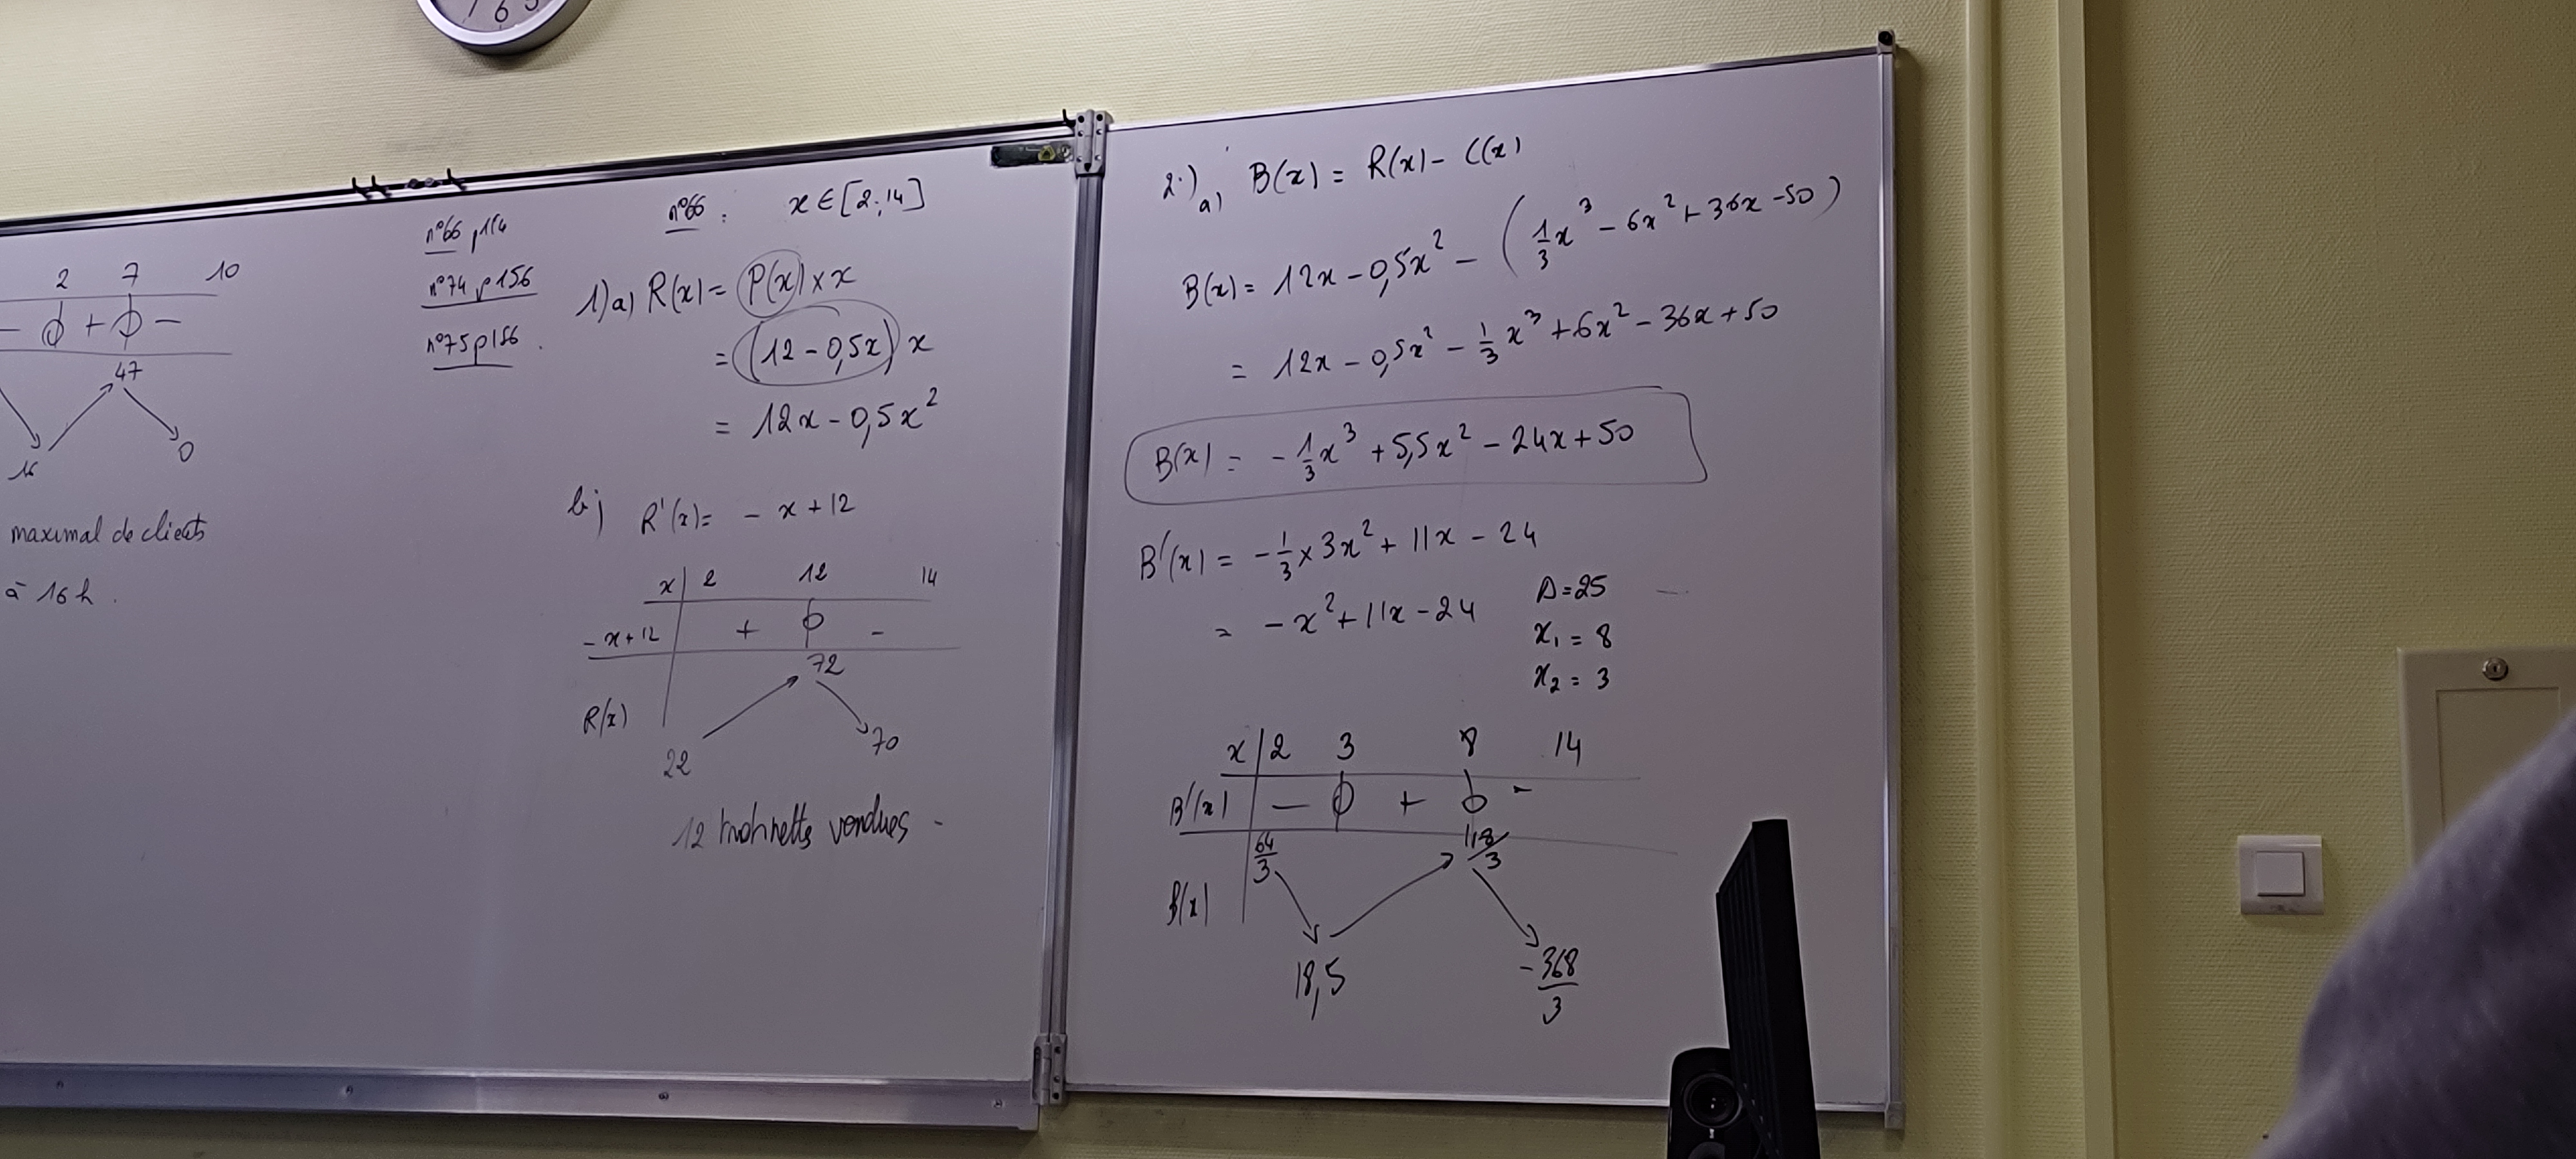 6 5
2 7 10
- 0 + 0 -
47
16 0
maximal de clients
à 16h.
n°66 p154
n°74 p156
n°75 p156.
n°66 : x ∈ [2;14]
1) a) R(x) = P(x) × x
= (12 - 0,5x) x
= 12x - 0,5x²
b) R'(x) = - x + 12
x 2 12 14
- x + 12 + 0 -
72
R(x)
22 70
12 vendues -
2.) a) B(x) = R(x) - C(x)
B(x) = 12x - 0,5x² - (1/3 x³ - 6x² + 36x - 50)
= 12x - 0,5x² - 1/3 x³ + 6x² - 36x + 50
B(x) = - 1/3 x³ + 5,5x² - 24x + 50
B'(x) = - 1/3 × 3x² + 11x - 24
= - x² + 11x - 24
Δ = 25
x₁ = 8
x₂ = 3
x 2 3 8 14
B'(x) - 0 + 0 -
64/3 118/3
B(x)
18,5 -368/3